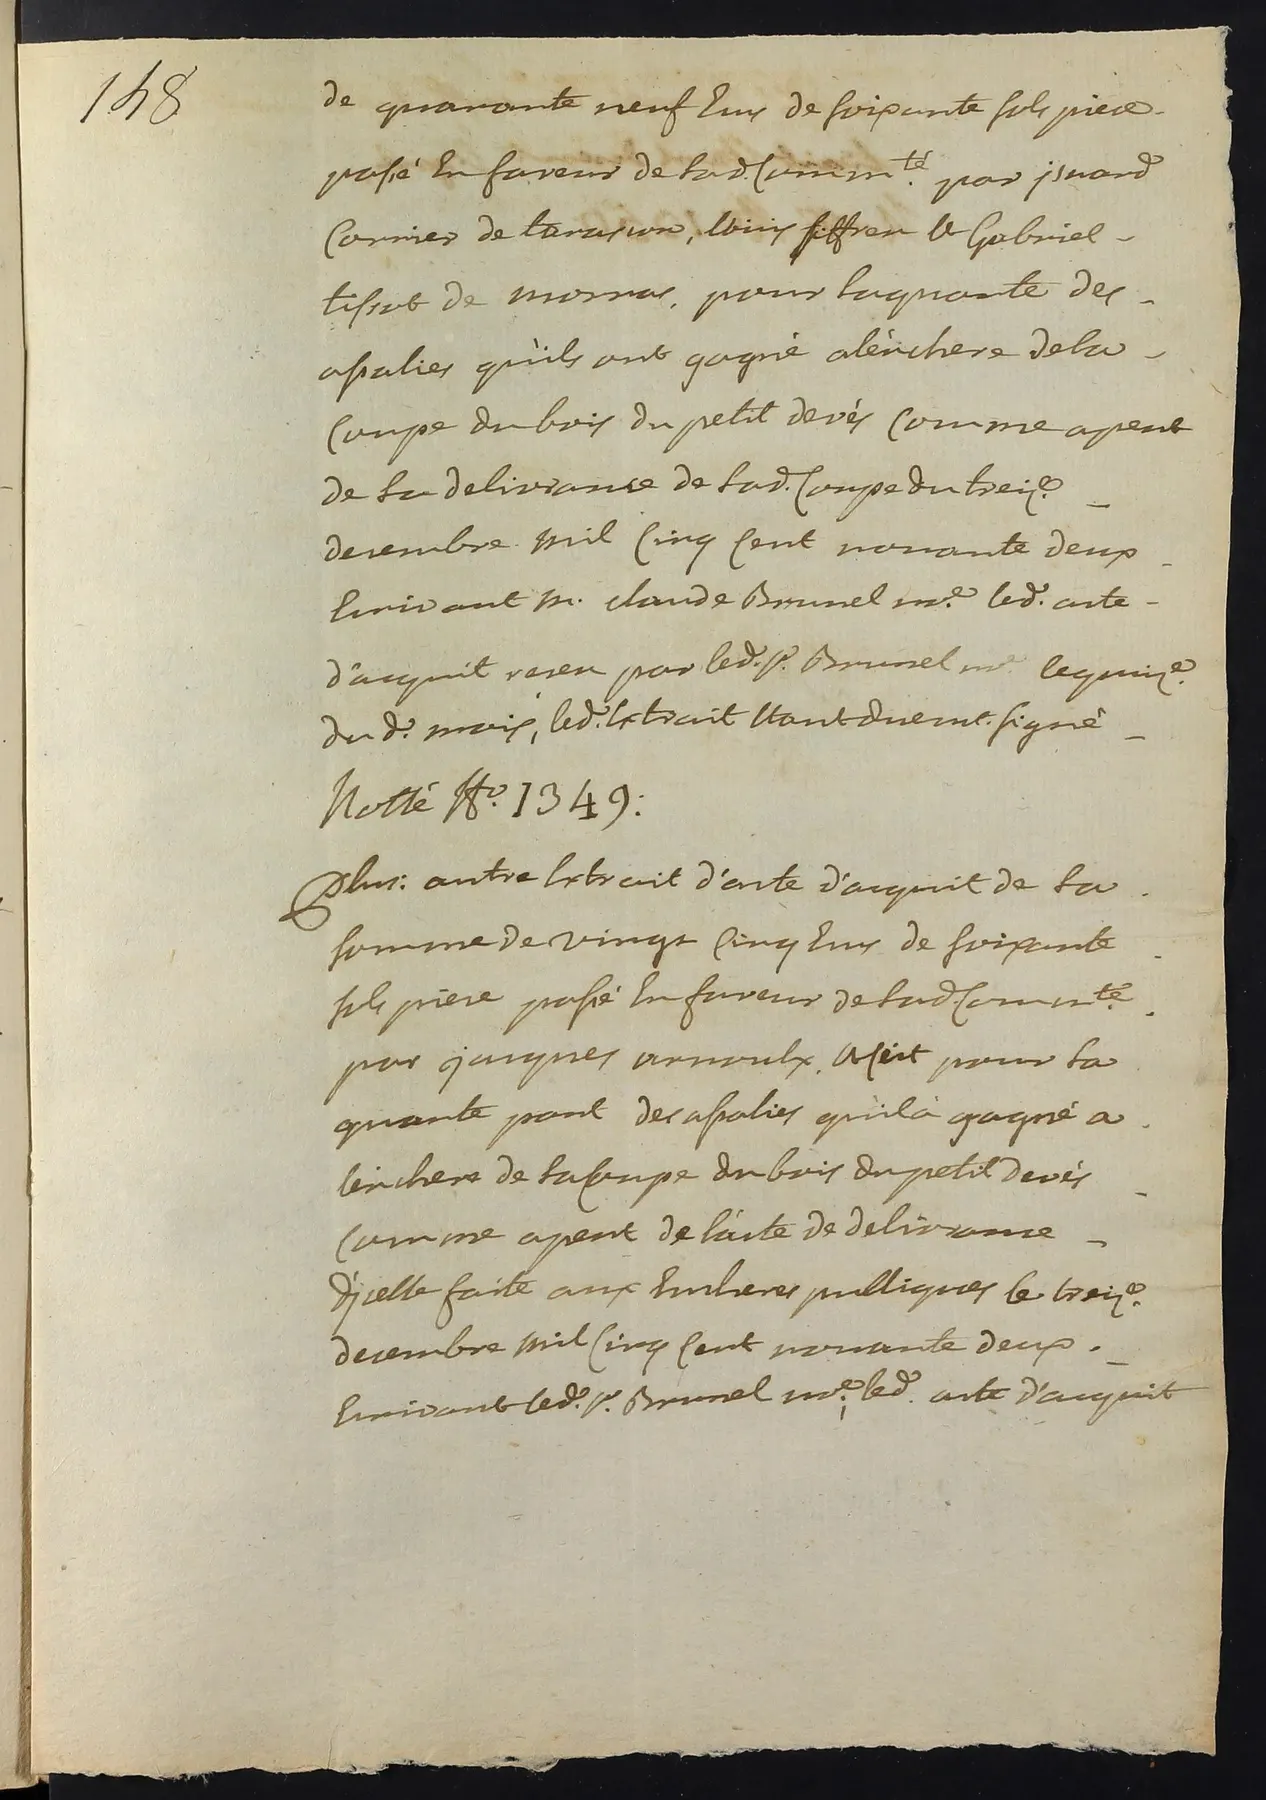 148
de quarante neuf Ecus de soixante sols piece
passé En faveur de lad. Comm.té par jsnard
Cornier de tarascon, loüis siffren Et Gabriel
tissot de mornas, pour laquarte des
aspalies qu'ils ont gagné alénchere dela
Coupe du bois du petit devés Comme apert
de la delivrance de lad. Coupe du treize
decembre mil Cinq Cent nonante deux
Ecrivant M. claude Brunel no.re led. acte
d'acquit receu par led. s.r Brunel no.re lequinze
du d. mois, led. Extrait Etant duemt. signé
Notté N.o 1349:
Plus: autre Extrait d'acte d'acquit de la
somme de vingt Cinq Ecus de soixante
sols piece passé En faveur de lad. Comm.té
par jacques arnoulx, Et C'est pour la
quarte part des aspalies qu'il à gagné a
lénchere de la Coupe du bois du petit devés
Comme apert de l'acte de delivrance
d'jcelle faite aux Encheres publiques le treize
decembre mil Cinq Cent nonante deux
Ecrivant led. s.r Brunel no.re, led. acte d'acquit